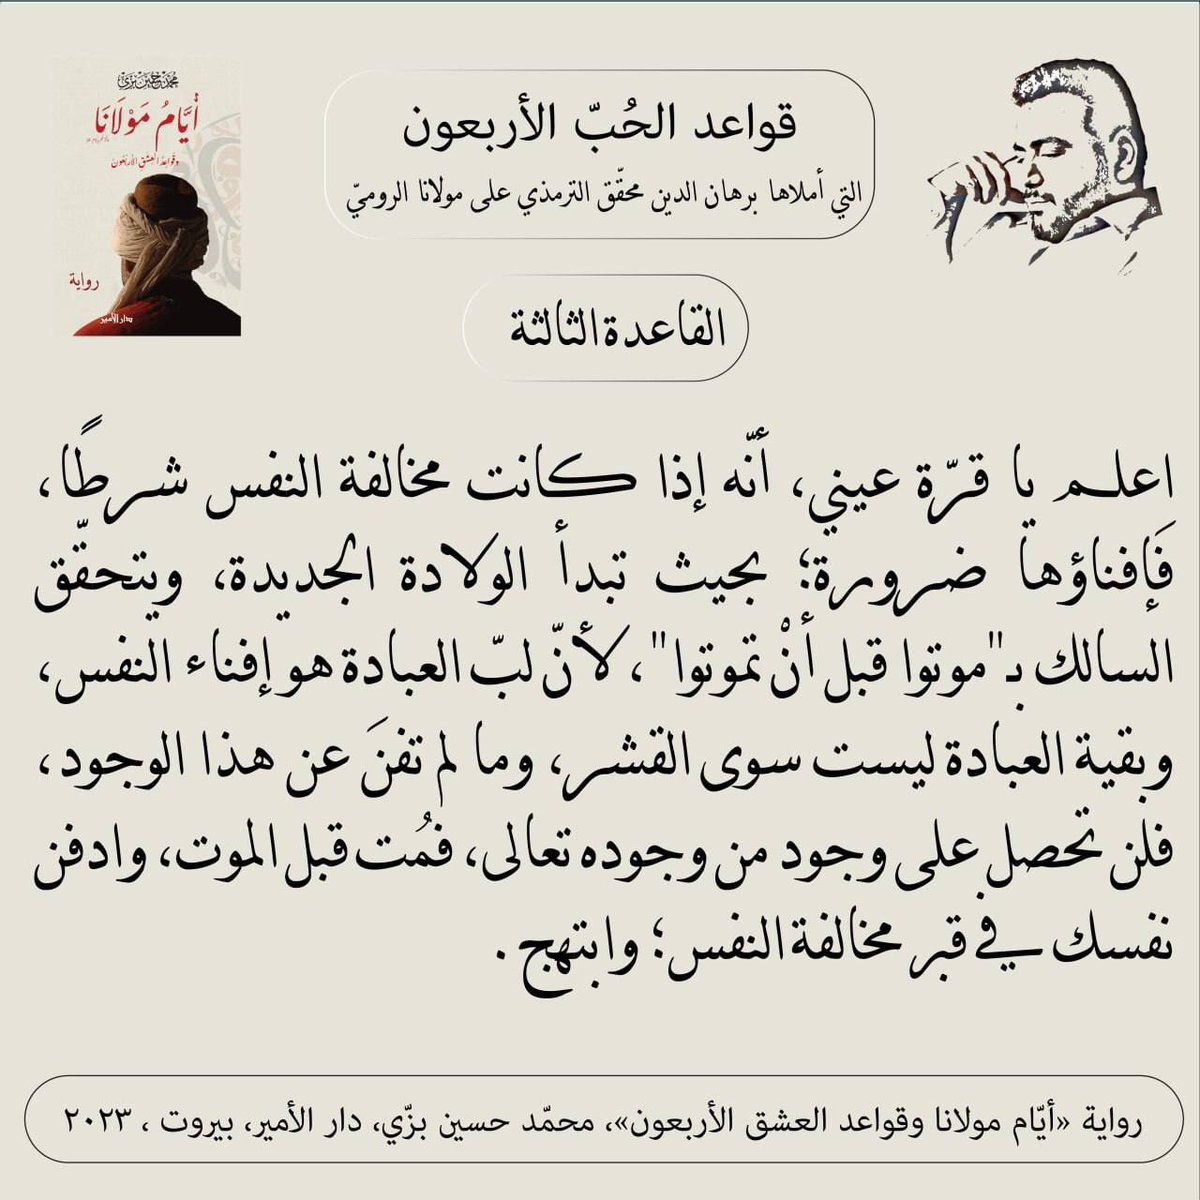 محمد حسين بزي
أيَّامُ مَوْلَانَا
وقواعد العشق الأربعون
رواية
دار الأمير
قواعد الحُبّ الأربعون
التي أملاها برهان الدين محقّق الترمذي على مولانا الروميّ
القاعدة الثالثة
اعلم يا قرّة عيني، أنّه إذا كانت مخالفة النفس شرطًا،
فَإفناؤها ضرورة؛ بحيث تبدأ الولادة الجديدة، ويتحقّق
السالك بـ"موتوا قبل أنْ تموتوا"، لأنّ لبّ العبادة هو إفناء النفس،
وبقية العبادة ليست سوى القشر، وما لم تفنَ عن هذا الوجود،
فلن تحصل على وجود من وجوده تعالى، فمُت قبل الموت، وادفن
نفسك في قبر مخالفة النفس؛ وابتهج.
رواية «أيّام مولانا وقواعد العشق الأربعون»، محمّد حسين بزّي، دار الأمير، بيروت، ٢٠٢٣